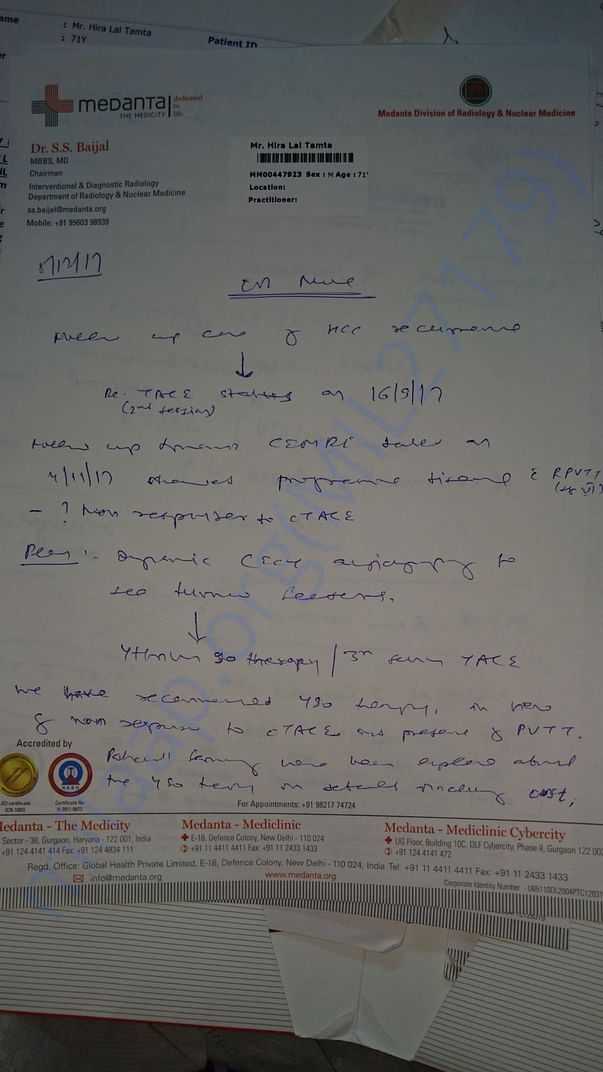 ame : Mr. Hira Lal Tamta
: 71Y Patient ID
medanta dedicated to life
THE MEDICITY
Medanta Division of Radiology & Nuclear Medicine
Dr. S.S. Baijal
MBBS, MD
Chairman
Interventional & Diagnostic Radiology
Department of Radiology & Nuclear Medicine
ss.baijal@medanta.org
Mobile: +91 95603 98939
Mr. Hira Lal Tamta
MM00447923 Sex : M Age : 71'
Location:
Practitioner:
/12/17
Follow up case of HCC recurrence
↓
Re. TACE started on 16/9/17
(2nd session)
Follow up dynamic CEMRI taken on
4/11/17 showed progressive disease c̄ RPVTT
- ? Non responser to cTACE
Plan :- Dynamic CECT angiography to
see tumor feeders.
↓
Yttrium 90 therapy / 3rd session TACE
We have recommended Y90 therapy, in view
of non response to cTACE and presence of PVTT.
Patient family have been explained about
the Y90 therapy in details including cost,
Accredited by
JCI certificate
NABH
Certificate No
H-2011-0073
For Appointments: +91 98217 74724
Medanta - The Medicity
Sector - 38, Gurgaon, Haryana - 122 001, India
+91 124 4141 414 Fax: +91 124 4834 111
Medanta - Mediclinic
E-18, Defence Colony, New Delhi - 110 024
+91 11 4411 4411 Fax: +91 11 2433 1433
Medanta - Mediclinic Cybercity
UG Floor, Building 10C, DLF Cybercity, Phase II, Gurgaon 122 002
+91 124 4141 472
Regd. Office: Global Health Private Limited, E-18, Defence Colony, New Delhi - 110 024, India Tel: +91 11 4411 4411 Fax: +91 11 2433 1433
info@medanta.org www.medanta.org
Corporate Identity Number - U85110DL2004PTC12831
.org(MIL27179)